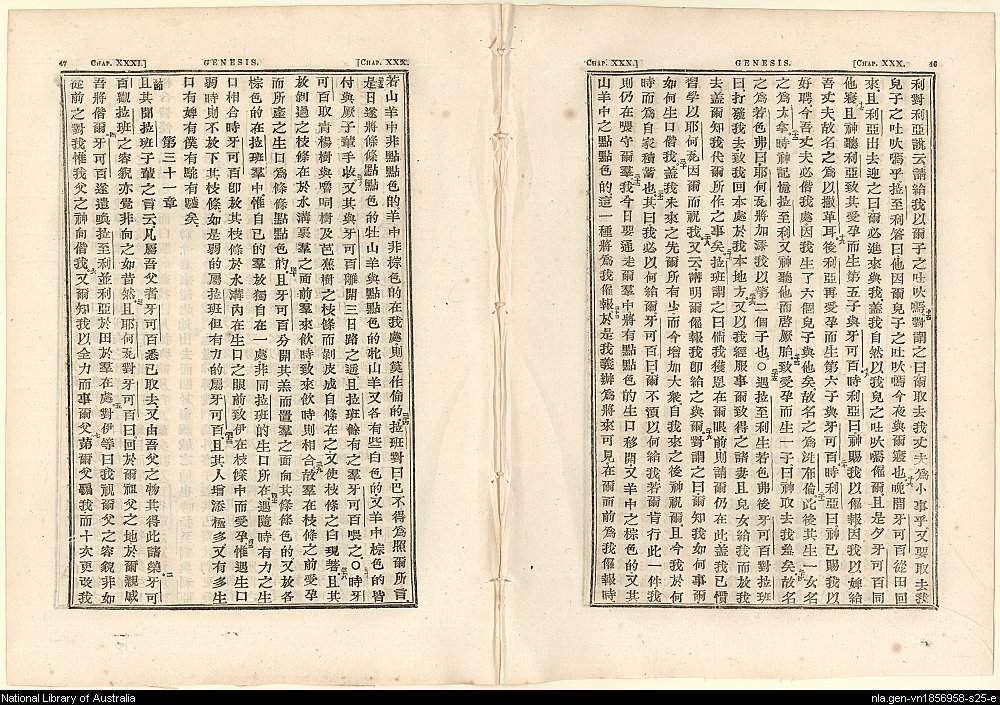 CHAP. XXX.] GENESIS. [CHAP. XXX. 46
利對利亞說云請給我以爾子之吐吠嗎對謂之曰爾取去我丈夫為小事乎又要取去我
兒子之吐吠嗎乎拉至利答曰他因爾兒子之吐吠嗎今夜與爾寢也晚間牙可百從田回
來且利亞出去迎之曰爾必進來與我蓋我自然以我兒之吐吠嗎僱爾且是夕牙可百同
他寢且神聽利亞致其受孕而生第五子與牙可百時利亞曰神賜我以僱報因我以婢給
吾丈夫故名之為以撒革耳後利亞再受孕而生第六子與牙可百時利亞曰神已賜我以
好聘今吾丈夫必偕我處因我生了六個兒子與他矣故名之為洗布倫此後其生一女名
之為大拿時神記憶拉至利又神聽他而啓厥胎致受孕而生一子曰神取去我羞矣故名
之為若色弗曰耶何瓦將加添我以第二個子也○遇拉至利生若色弗後牙可百對拉班
曰打發我去致我回本處於我本地方又以我經服事爾致得之諸妻且兒女給我而放我
去蓋爾知我代爾所作之事矣拉班謂之曰倘我獲恩在爾眼前則請爾仍在此蓋我已慣
習學以耶何瓦因爾而祝我又云請明爾僱報我卽給之與爾對謂之曰爾知我如何事爾
如何生口偕我蓋我未來之先爾所有少而今增加大衆自我來之後神祝爾且今我於何
時而為自家積蓄也其曰我必以何給爾牙可百曰爾不須以何給我若爾肯行此一件我
則仍在喂守爾羣我今日要通走爾羣中將有點點色的生口移開又羊中之棕色的又其
山羊中之點點色的這一種將為我僱報於是我義將來可見在爾面前為我僱報時
47 CHAP. XXXI.] GENESIS. [CHAP. XXX.
若山羊中非點點色的羊中非棕色的在我處則莫作偷的拉班對曰巴不得為照爾所言
是日遂將條條點點色的牡山羊與點點色的牝山羊又各有些白色的又羊中棕色的皆
付與厥子輩手收又其與牙可百離開三日路之逕且拉班餘有之羣牙可百喂之○時牙
可百取青楊樹與嚕呵樹及芭蕉樹之枝條而剝皮成白條在之又使枝條之白現著且其
放剝過之枝條在於水溝裏羣之面前羣來飲時致來飲時則相合故羣在枝條之前受孕
而所產之生口為條條點點色的且牙可百分開其羔而置羣之面向其條條色的又放各
棕色的在拉班羣中惟自己的羣放獨自在一處非同拉班的生口所在遇隨時有力之生
口相合時牙可百卽放其枝條於水溝內在生口之眼前致伊在枝條中而受孕惟遇生口
弱時則不放下其枝條如是弱的屬拉班但有力的屬牙可百且其人增添極多又有多生
口有婢有僕有駝有驢矣
第三十一章
且其聞拉班子輩之言云凡屬吾父者牙可百悉已取去又由吾父之物其得此諸榮牙可
百觀拉班之容貌亦覺非向之如昔然且耶何瓦對牙可百曰回於爾祖父之地於爾親戚
吾將偕爾牙可百遂遣喚拉至利並利亞於田於羣在處對伊等曰我視爾父之容貌非如
從前之對我惟我父之神向偕我又爾知我以全力而事爾父第爾父騙我而十次更改我
National Library of Australia
nla.gen-vn1856958-s25-e